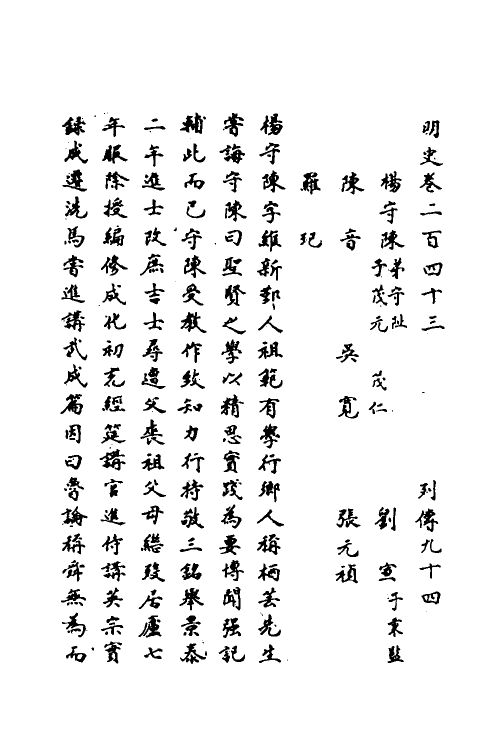 明史卷二百四十三　列傳九十四
楊守陳 弟守阯 子茂元 茂仁　劉宣 子秉監
陳音　吳寬　張元禎
羅玘
楊守陳字維新鄞人祖範有學行鄉人稱栖芸先生
嘗誨守陳曰聖賢之學以精思實踐為要博聞强記
輔此而已守陳受教作致知力行持敬三銘舉景泰
二年進士改庶吉士尋遭父喪祖父母繼歿居廬七
年服除授編修成化初充經筵講官進侍講英宗實
錄成遷洗馬嘗進講武成篇因曰魯論稱舜無為而